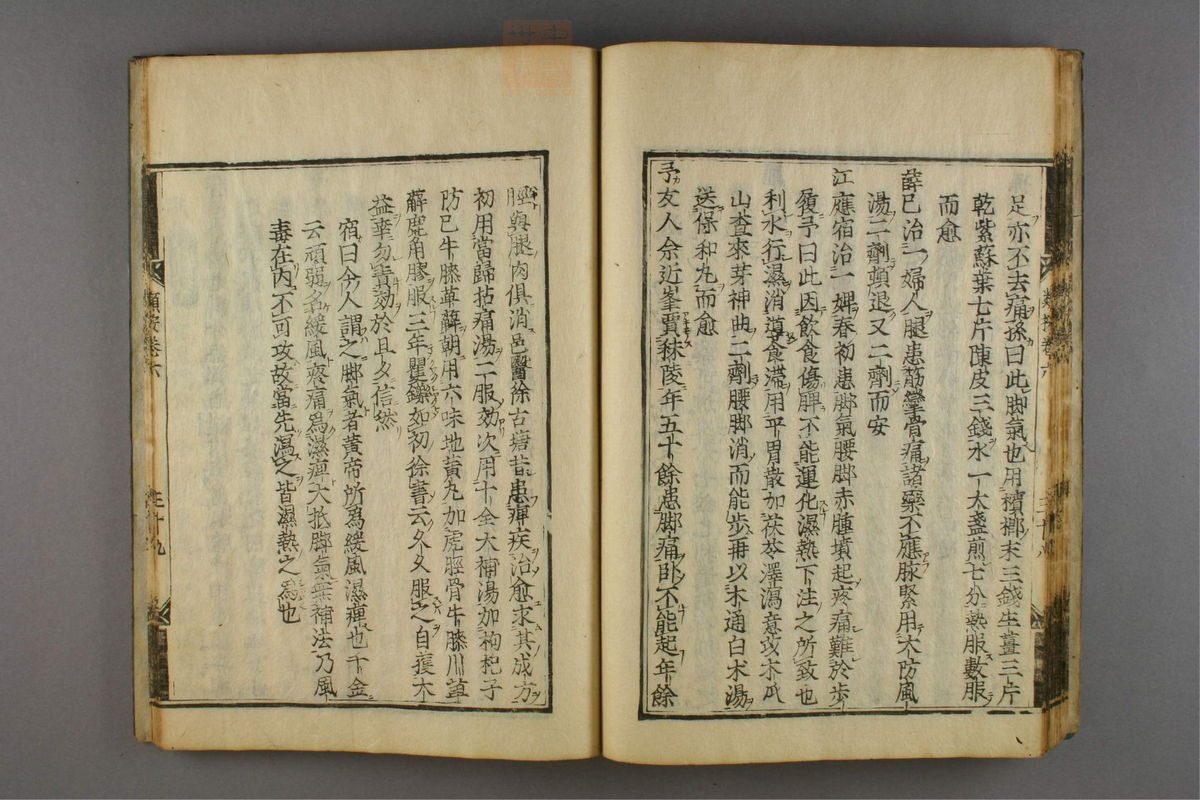 足亦不去痛孫曰此脚氣也用檳榔末三錢生薑三片
乾紫蘇葉七片陳皮三錢水一大盞煎七分熱服數服
而愈
薛己治一婦人腿患筋攣骨痛諸藥不應脉緊用大防風
湯二劑頓退又二劑而安
江應宿治一婢春初患脚氣腰脚赤腫墳起疼痛難於步
履予曰此因飲食傷脾不能運化濕熱下注之所致也
利水行濕消導食滯用平胃散加茯苓澤瀉意苡木瓜
山查麥芽神曲二劑腰脚消而能步再以木通白朮湯
送保和丸而愈
予友人余近峯賈秣陵年五十餘患脚痛卧不能起年餘
脛與腿肉俱消邑醫徐古塘昔患痺疾治愈求其成方
初用當歸拈痛湯二服效次用十全大補湯加枸杞子
防已牛膝萆薢朝用六味地黃丸加虎脛骨牛膝川萆
薢鹿角膠服三年矍鑠如初徐書云久久服之自獲大
益幸勿責効於旦夕信然
宿曰今人謂之脚氣者黃帝所爲緩風濕痺也千金
云頑弱名緩風疼痛爲濕痺大抵脚氣無補法乃風
毒在內不可攻故當先瀉之皆濕熱之爲也
類案卷六
三十九